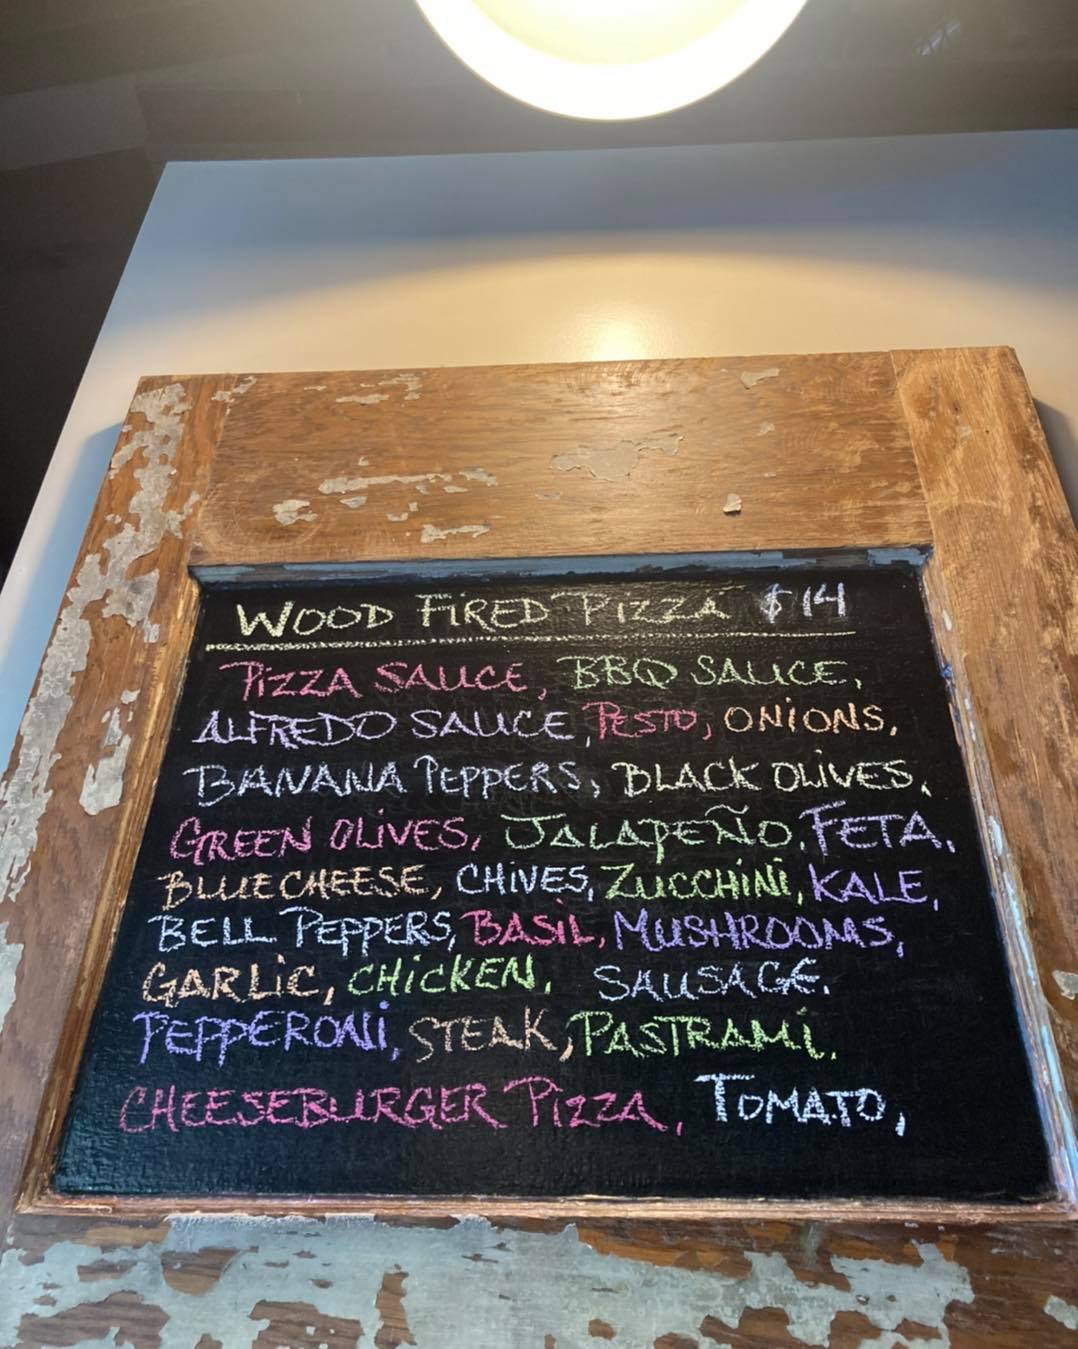 WOOD FIRED PIZZA $14
PIZZA SAUCE, BBQ SAUCE,
ALFREDO SAUCE, PESTO, ONIONS,
BANANA PEPPERS, BLACK OLIVES,
GREEN OLIVES, JALAPEÑO, FETA,
BLUE CHEESE, CHIVES, ZUCCHINI, KALE,
BELL PEPPERS, BASIL, MUSHROOMS,
GARLIC, CHICKEN, SAUSAGE,
PEPPERONI, STEAK, PASTRAMI,
CHEESEBURGER PIZZA, TOMATO,